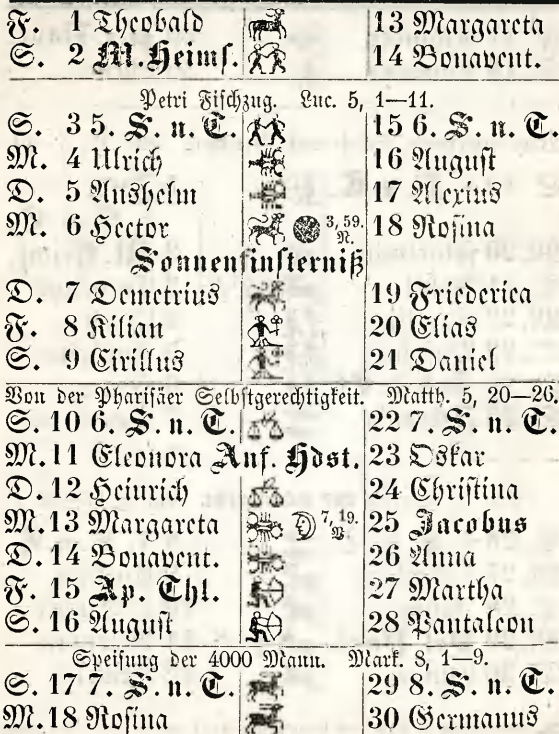 F. 1 Theobald 13 Margareta
S. 2 M. Heims. 14 Bonavent.
Petri Fischzug. Luc. 5, 1—11.
S. 3 5. S. n. T. 15 6. S. n. T.
M. 4 Ulrich 16 August
D. 5 Anshelm 17 Alexius
M. 6 Hector 3, 59. N. 18 Rosina
Sonnenfinsterniß
D. 7 Demetrius 19 Friederica
F. 8 Kilian 20 Elias
S. 9 Cirillus 21 Daniel
Von der Pharisäer Selbstgerechtigkeit. Matth. 5, 20—26.
S. 10 6. S. n. T. 22 7. S. n. T.
M. 11 Eleonora Anf. Hdst. 23 Oskar
D. 12 Heinrich 24 Christina
M. 13 Margareta 7, 19. V. 25 Jacobus
D. 14 Bonavent. 26 Anna
F. 15 Ap. Thl. 27 Martha
S. 16 August 28 Pantaleon
Speisung der 4000 Mann. Mark. 8, 1—9.
S. 17 7. S. n. T. 29 8. S. n. T.
M. 18 Rosina 30 Germanus